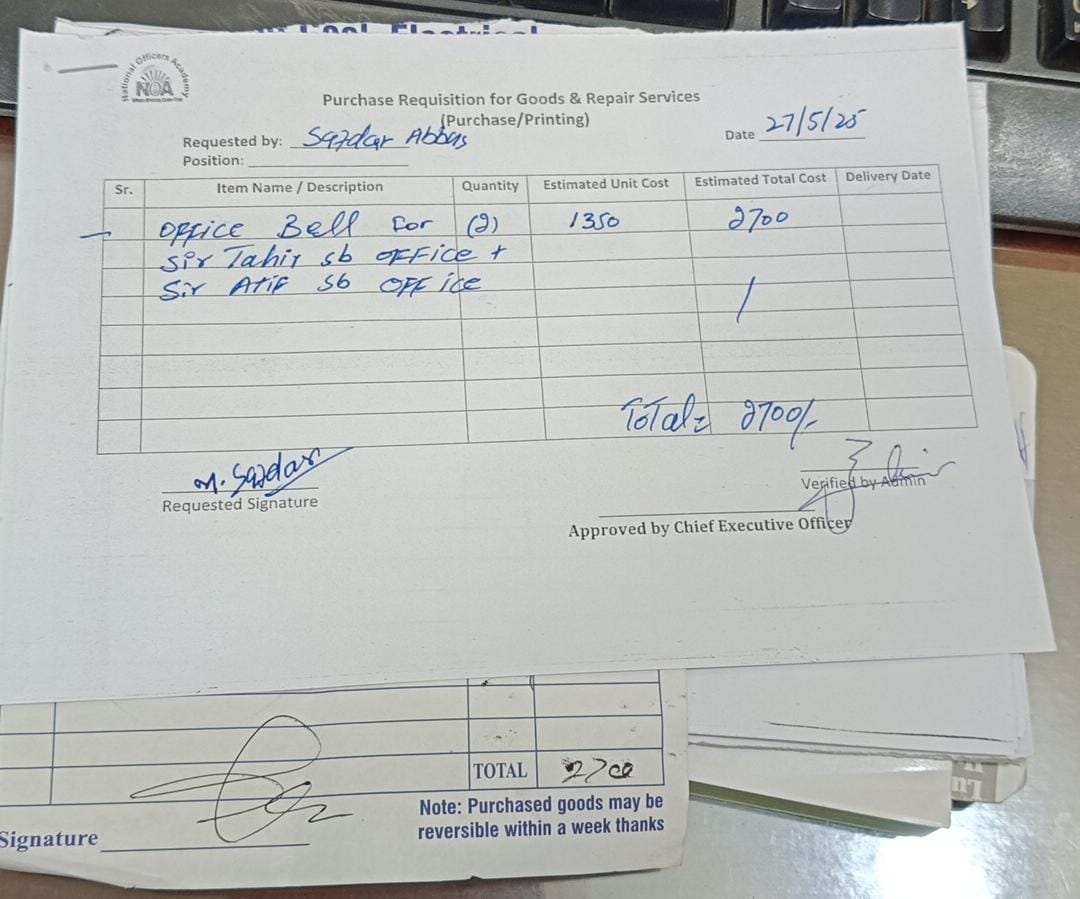 National Officers Academy
NOA
Purchase Requisition for Goods & Repair Services
(Purchase/Printing)
Requested by: Sazdar Abbas
Date 27/5/25
Position:
Sr. Item Name / Description Quantity Estimated Unit Cost Estimated Total Cost Delivery Date
OFFice Bell For (2) 1350 2700
Sir Tahir sb OFFice +
Sir Atif sb OFFice
Total= 2700/-
M. Sazdar
Requested Signature
Verified by Admin
Approved by Chief Executive Officer
TOTAL 2700
Note: Purchased goods may be
reversible within a week thanks
Signature